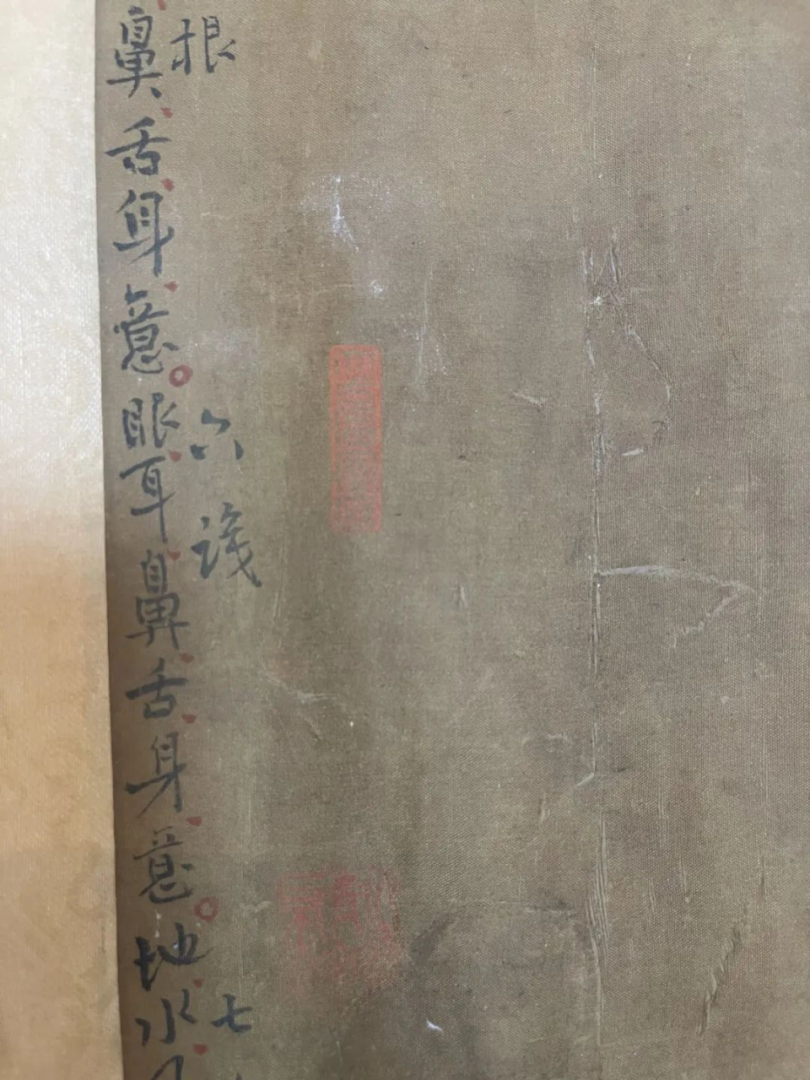 根
六識
七
鼻舌身意眼耳鼻舌身意地水